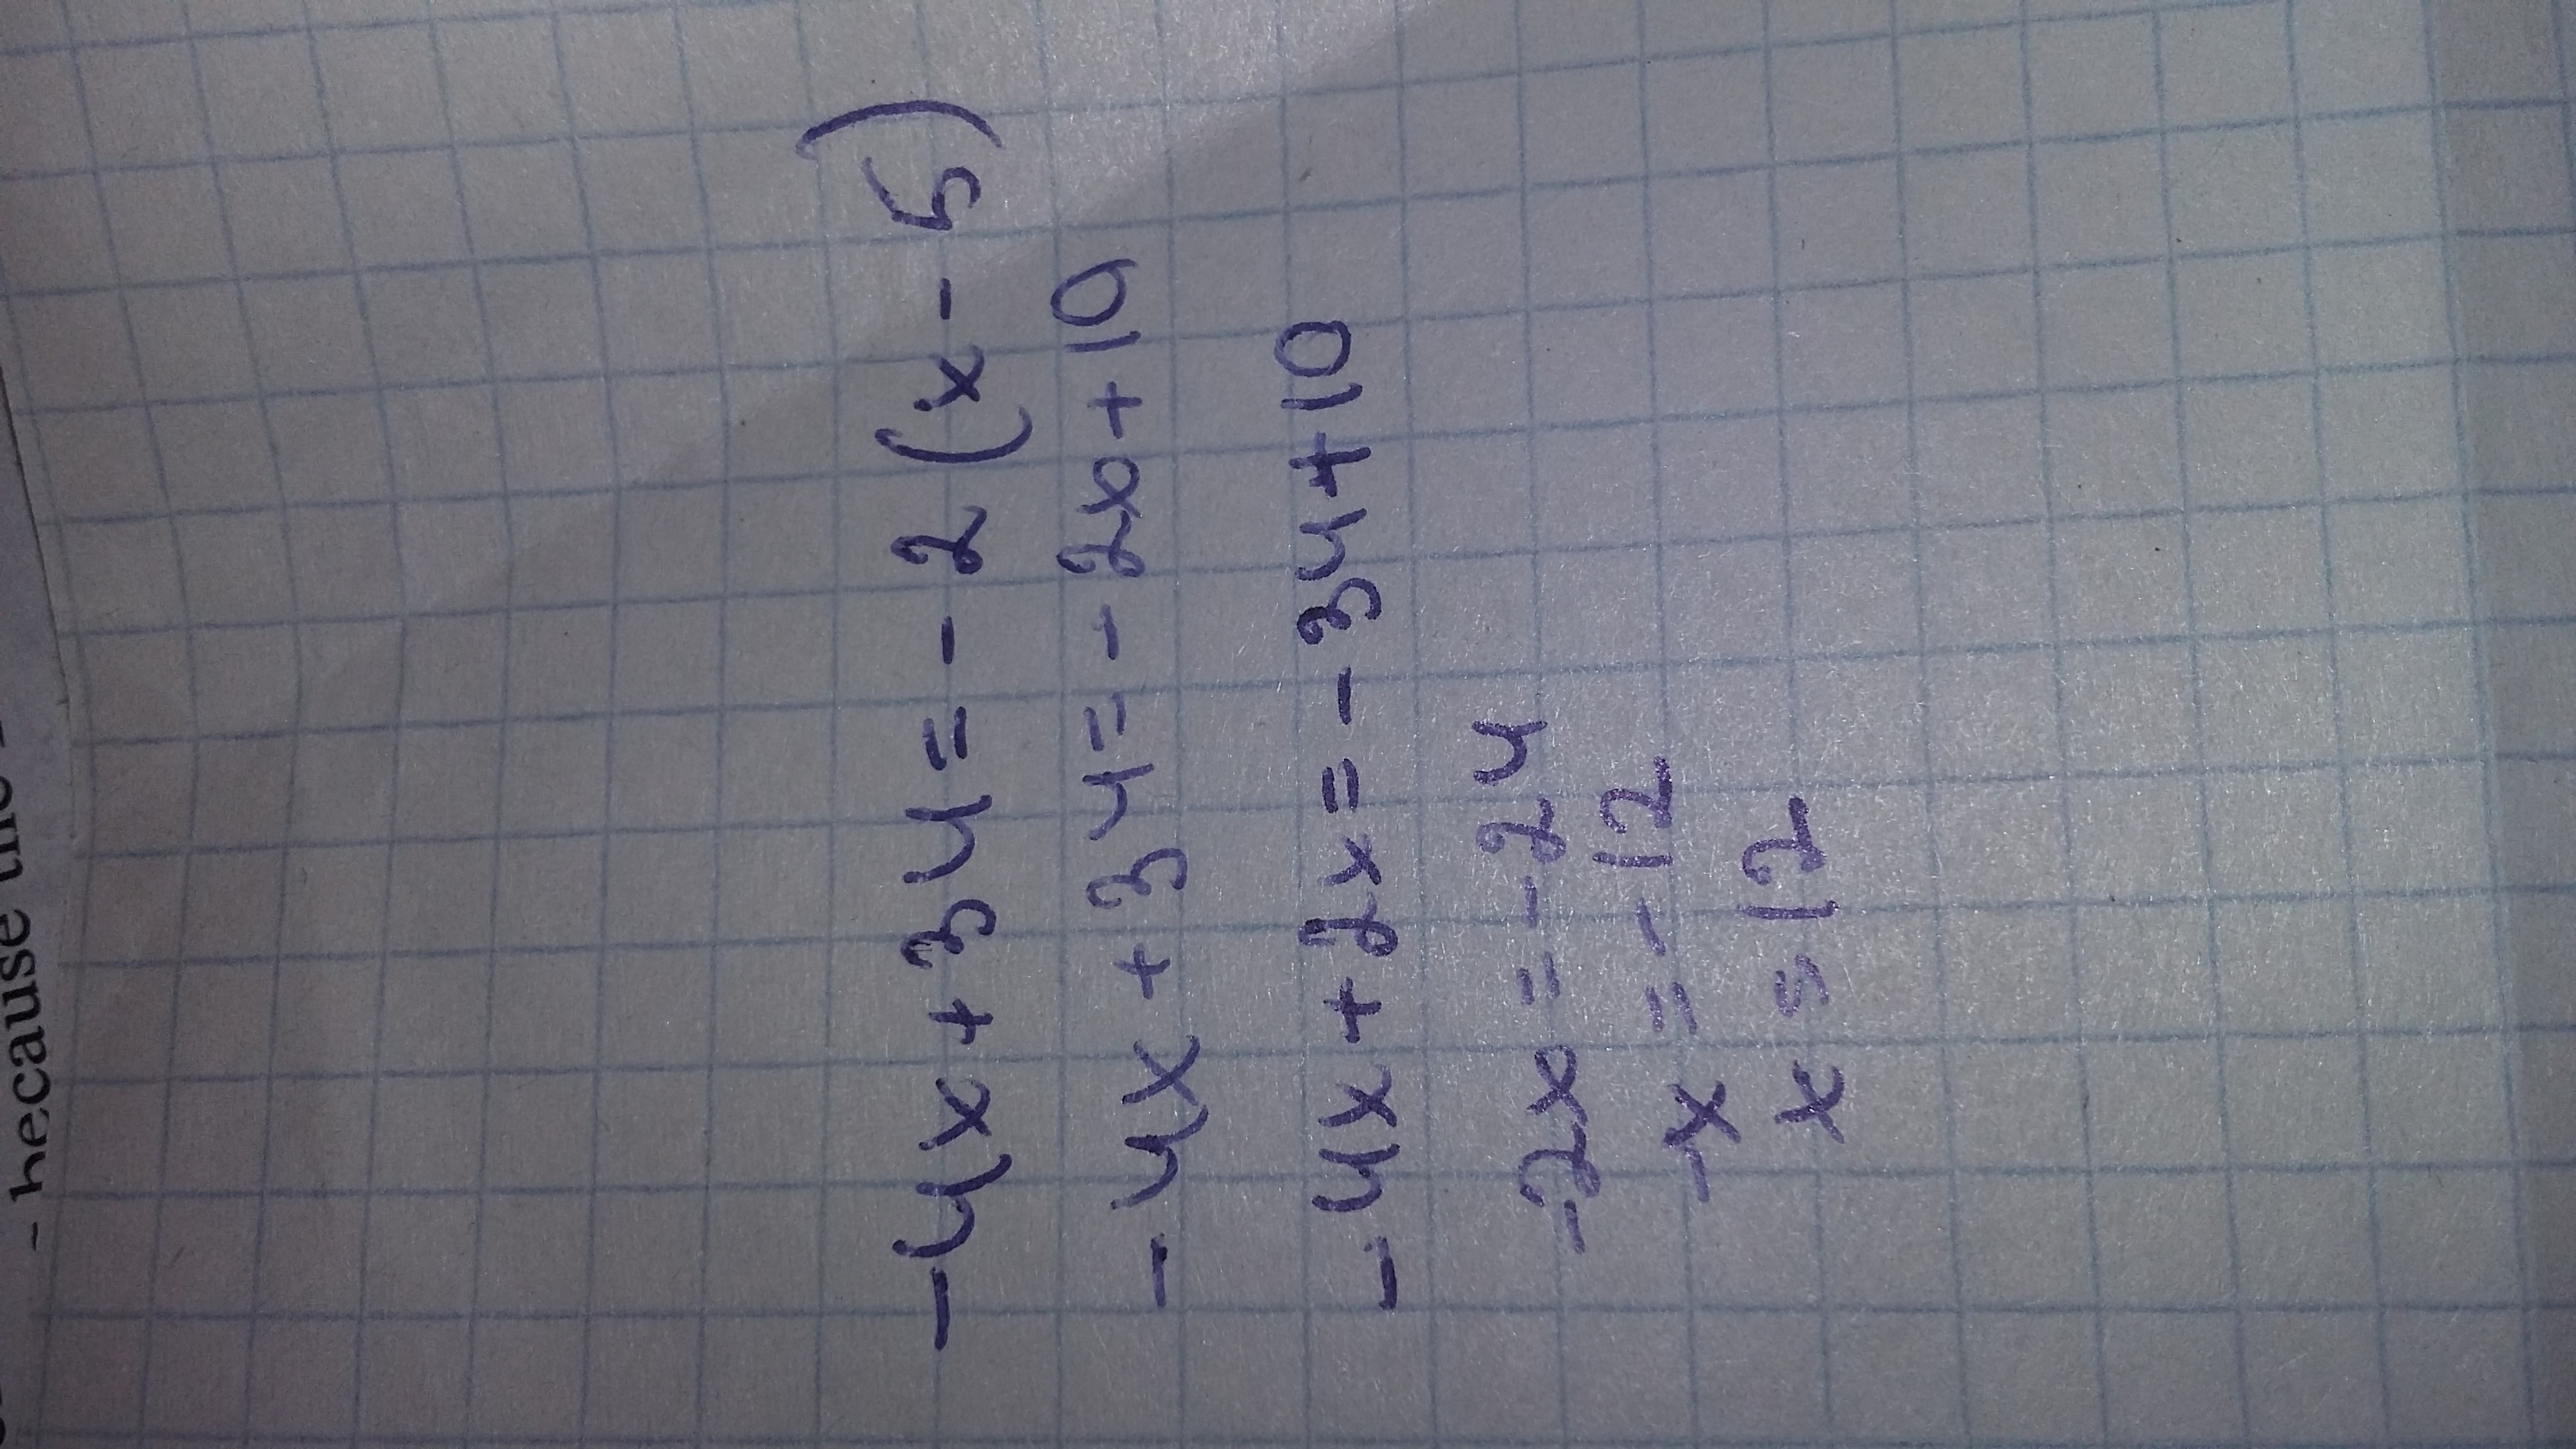 - because the -
-4x + 34 = - 2 (x - 5)
- 4x + 34 = - 2x + 10
- 4x + 2x = - 34 + 10
-2x = - 24
-x = - 12
x = 12